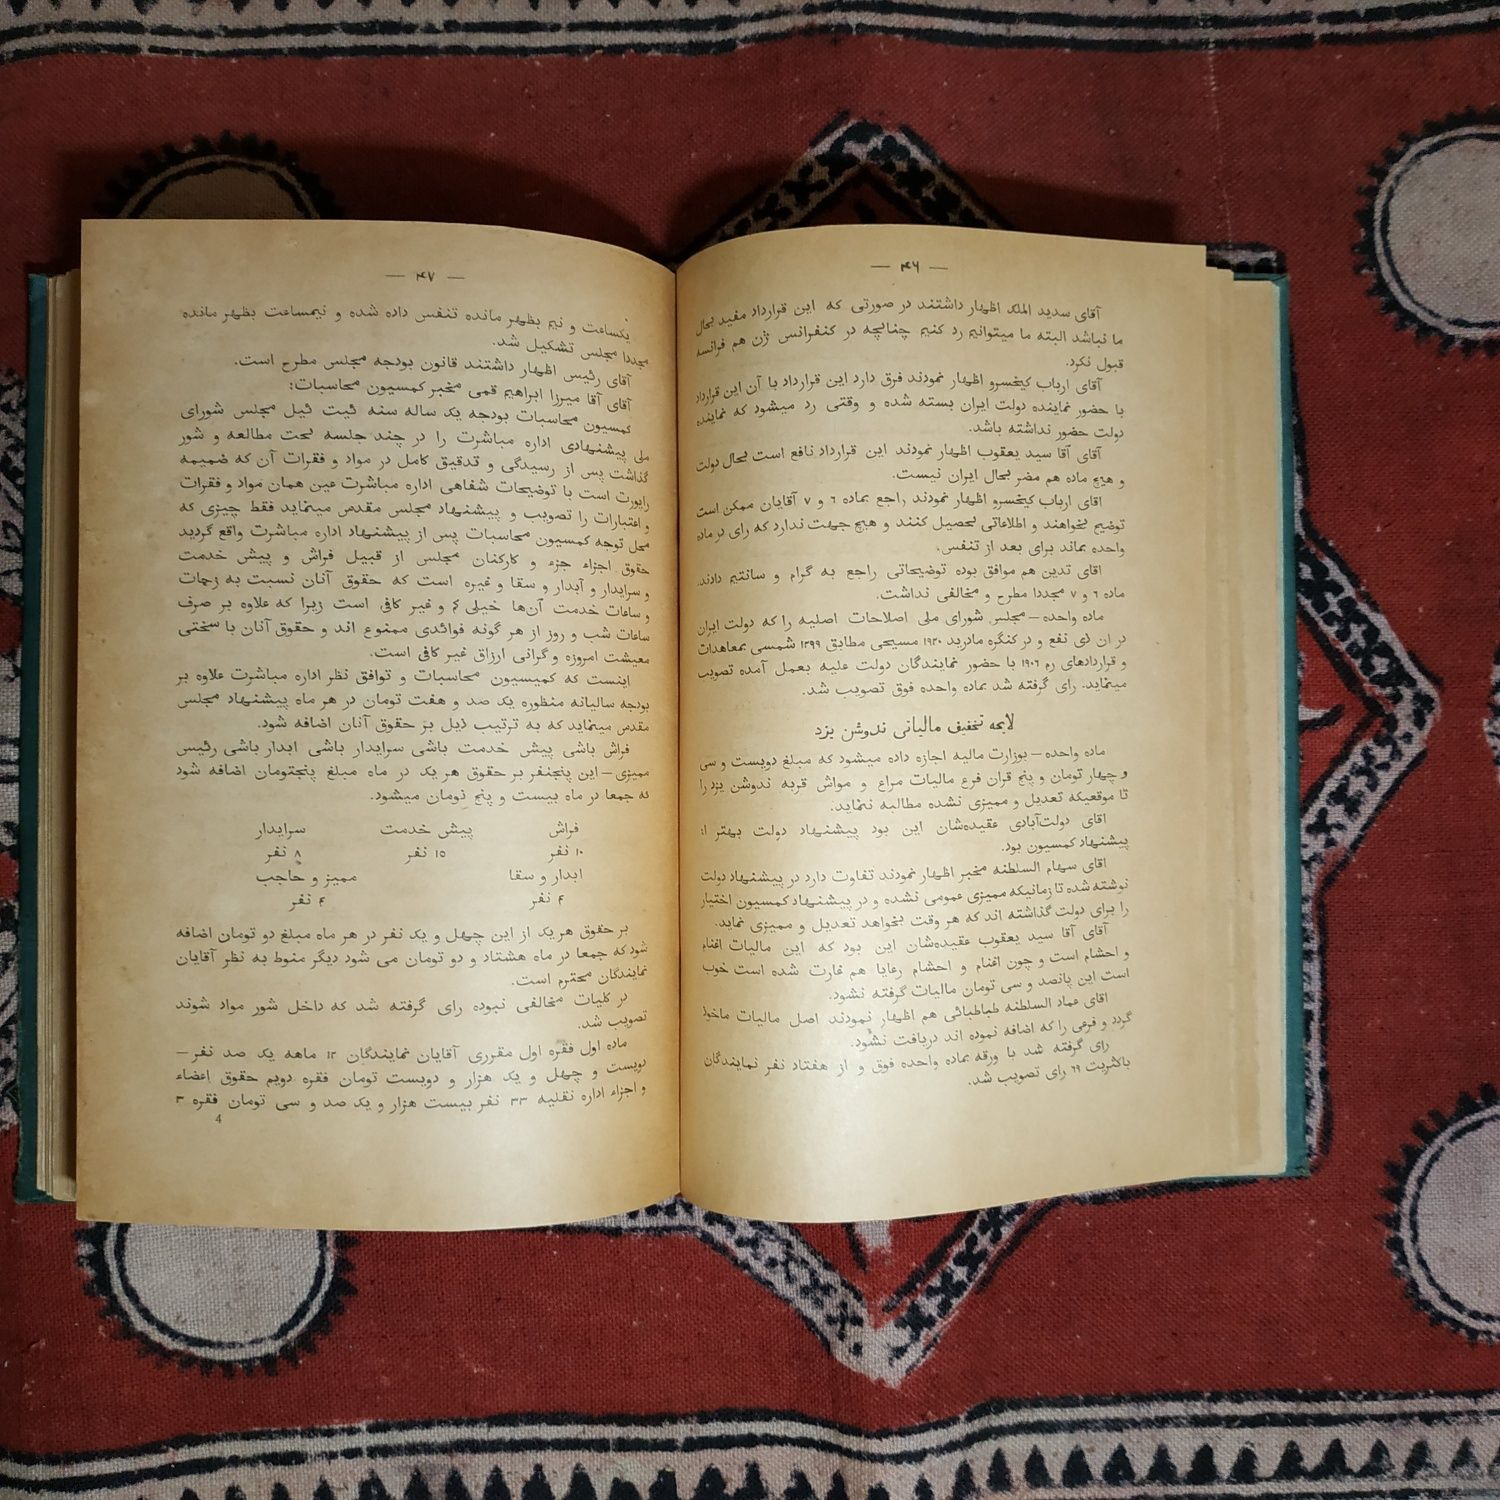 — ۴۶ —
آقای سدید الملک اظهار داشتند در صورتی که این قرارداد مفید بحال
ما نباشد البته ما میتوانیم رد کنیم چنانچه در کنفرانس ژن هم فرانسه
قبول نکرد.
آقای ارباب کیخسرو اظهار نمودند فرق دارد این قرارداد با آن این قرارداد
با حضور نماینده دولت ایران بسته شده و وقتی رد میشود که نماینده
دولت حضور نداشته باشد.
آقای آقا سید یعقوب اظهار نمودند این قرارداد نافع است بحال دولت
و هیچ ماده هم مضر بحال ایران نیست.
اقای ارباب کیخسرو اظهار نمودند راجع بماده ٦ و ۷ آقایان ممکن است
توضیح بخواهند و اطلاعاتی تحصیل کنند و هیچ جهت ندارد که رای در ماده
واحده بماند برای بعد از تنفس.
اقای تدین هم موافق بوده توضیحاتی راجع به گرام و سانتیم دادند.
ماده ٦ و ۷ مجددا مطرح و مخالفی نداشت.
ماده واحده – مجلس شورای ملی اصلاحات اصلیه را که دولت ایران
در ان ذی نفع و در کنگره مادرید ۱۹۲۰ مسیحی مطابق ۱۲۹۹ شمسی بمعاهدات
و قراردادهای رم ۱۹۰٦ با حضور نمایندگان دولت علیه بعمل آمده تصویب
مینماید. رای گرفته شد بماده واحده فوق تصویب شد.
لایحه تخفیف مالیاتی ندوشن یزد
ماده واحده – بوزارت مالیه اجازه داده میشود که مبلغ دویست و سی
و چهار تومان و پنج قران فرع مالیات مراع و مواش قریه ندوشن یزد را
تا موقعیکه تعدیل و ممیزی نشده مطالبه ننماید.
اقای دولت‌آبادی عقیده‌شان این بود پیشنهاد دولت بهتر از
پیشنهاد کمسیون بود.
اقای سهام السلطنه مخبر اظهار نمودند تفاوت دارد در پیشنهاد دولت
نوشته شده تا زمانیکه ممیزی عمومی نشده و در پیشنهاد کمسیون اختیار
را برای دولت گذاشته اند که هر وقت بخواهد تعدیل و ممیزی نماید.
آقای آقا سید یعقوب عقیده‌شان این بود که این مالیات اغنام
و احشام است و چون اغنام و احشام رعایا هم غارت شده است خوب
است این پانصد و سی تومان مالیات گرفته نشود.
اقای عماد السلطنه طباطبائی هم اظهار نمودند اصل مالیات ماخوذ
گردد و فرعی را که اضافه نموده اند دریافت نشود.
رای گرفته شد با ورقه بماده واحده فوق و از هفتاد نفر نمایندگان
باکثریت ٦۹ رای تصویب شد.
— ۴۷ —
یکساعت و نیم بظهر مانده تنفس داده شده و نیمساعت بظهر مانده
مجددا مجلس تشکیل شد.
آقای رئیس اظهار داشتند قانون بودجه مجلس مطرح است.
آقای آقا میرزا ابراهیم قمی مخبر کمسیون محاسبات:
کمسیون محاسبات بودجه یک ساله سنه ئیت ئیل مجلس شورای
ملی پیشنهادی اداره مباشرت را در چند جلسه تحت مطالعه و شور
گذاشت پس از رسیدگی و تدقیق کامل در مواد و فقرات آن که ضمیمه
راپورت است با توضیحات شفاهی اداره مباشرت عین همان مواد و فقرات
و اعتبارات را تصویب و پیشنهاد مجلس مقدس مینماید فقط چیزی که
محل توجه کمسیون محاسبات پس از پیشنهاد اداره مباشرت واقع گردید
حقوق اجزاء جزء و کارکنان مجلس از قبیل فراش و پیش خدمت
و سرایدار و آبدار و سقا و غیره است که حقوق آنان نسبت به زحمات
و ساعات خدمت آن‌ها خیلی کم و غیر کافی است زیرا که علاوه بر صرف
ساعات شب و روز از هر گونه فوائدی ممنوع اند و حقوق آنان با سختی
معیشت امروزه و گرانی ارزاق غیر کافی است.
اینست که کمیسیون محاسبات و توافق نظر اداره مباشرت علاوه بر
بودجه سالیانه منظوره یک صد و هفت تومان در هر ماه پیشنهاد مجلس
مقدس مینماید که به ترتیب ذیل بر حقوق آنان اضافه شود.
فراش باشی پیش خدمت باشی سرایدار باشی ابدار باشی رئیس
ممیزی – این پنجنفر بر حقوق هر یک در ماه مبلغ پنجتومان اضافه شود
که جمعا در ماه بیست و پنج تومان میشود.
فراش پیش خدمت سرایدار
۱۰ نفر ۱٥ نفر ۸ نفر
ابدار و سقا ممیز و حاجب
۴ نفر ۴ نفر
بر حقوق هر یک از این چهل و یک نفر در هر ماه مبلغ دو تومان اضافه
شود که جمعا در ماه هشتاد و دو تومان می شود دیگر منوط به نظر آقایان
نمایندگان محترم است.
در کلیات مخالفی نبوده رای گرفته شد که داخل شور مواد شوند
تصویب شد.
ماده اول فقره اول مقرری آقایان نمایندگان ۱۲ ماهه یک صد نفر –
دویست و چهل و یک هزار و دویست تومان فقره دویم حقوق اعضاء
و اجزاء اداره نقلیه ۳۳ نفر بیست هزار و یک صد و سی تومان فقره ۳
4